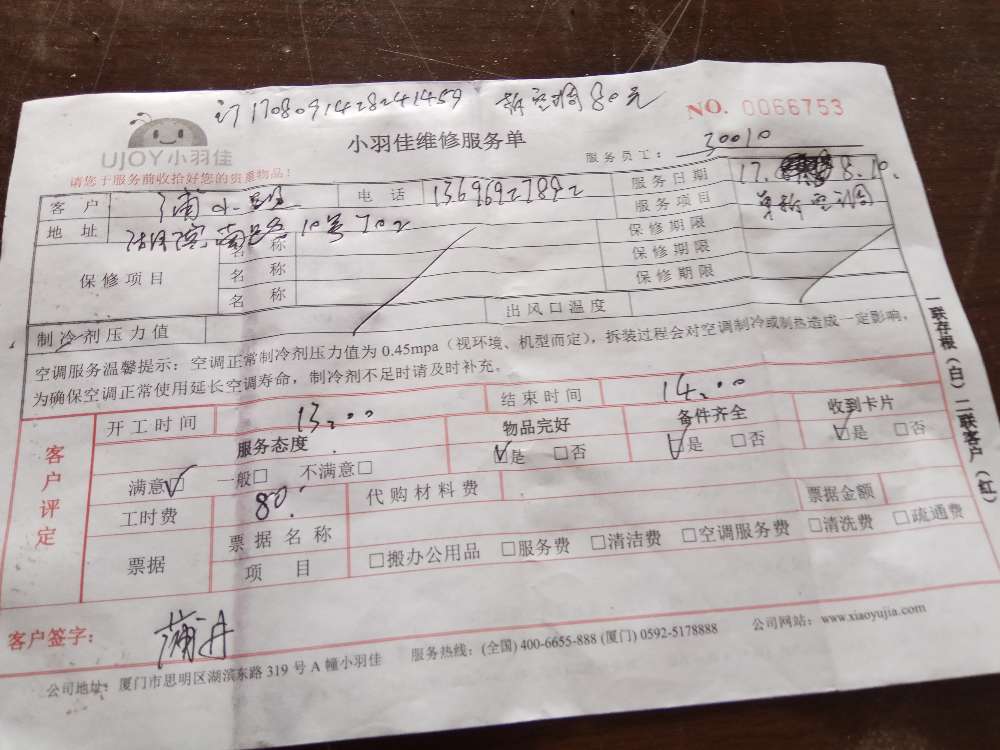 订1708091428241459 拆空调80元
NO. 0066753
UJOY小羽佳
小羽佳维修服务单
服务员工: 30010
请您于服务前收拾好您的贵重物品!
客户 小姐 电话 13696927892 服务日期 17. 8.10.
地址 南区 10号702 服务项目 单拆空调
保修项目 名称 保修期限
名称 保修期限
名称 保修期限
制冷剂压力值 出风口温度
空调服务温馨提示:空调正常制冷剂压力值为0.45mpa(视环境、机型而定),拆装过程会对空调制冷或制热造成一定影响,
为确保空调正常使用延长空调寿命,制冷剂不足时请及时补充。
客户评定
开工时间 13:00 结束时间 14:00
服务态度 物品完好 备件齐全 收到卡片
满意☑ 一般□ 不满意□ ☑是 □否 ☑是 □否 ☑是 □否
工时费 80. 代购材料费
票据 票据名称 票据金额
项目 □搬办公用品 □服务费 □清洁费 □空调服务费 □清洗费 □疏通费
一联存根(白)二联客户(红)
客户签字:
公司地址:厦门市思明区湖滨东路319号A幢小羽佳 服务热线:(全国)400-6655-888(厦门)0592-5178888 公司网站:www.xiaoyujia.com